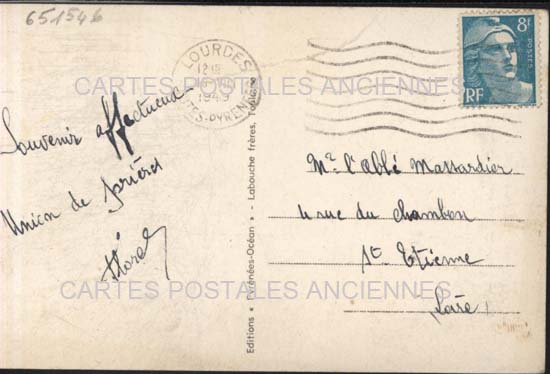 651546
LOURDES
12H
1949
HTES-PYRENEES
8F
POSTES
RF
CARTES POSTALES ANCIENNES
Souvenir affectueux
Union de prières
Editions * Pyrénées-Océan * - Labouche frères, Toulouse
Mr. l'Abbé Massardier
4 rue du Chambon
St Etienne
Loire
CARTES POSTALES ANCIENNES